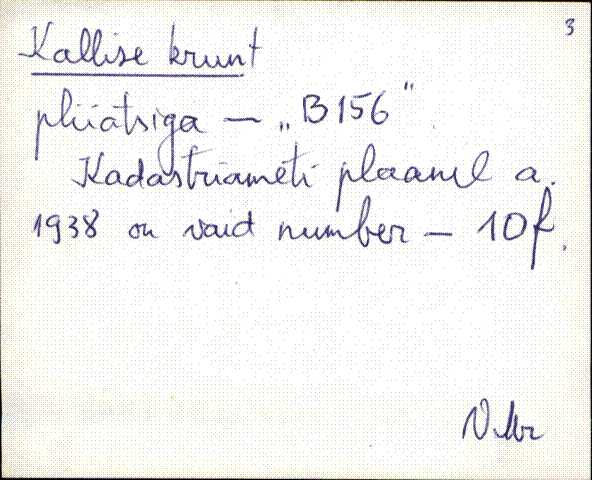 3
Kallise krunt
pliiatsiga — „B156"
Kadastriameti plaanil a.
1938 on vaid number — 10f.